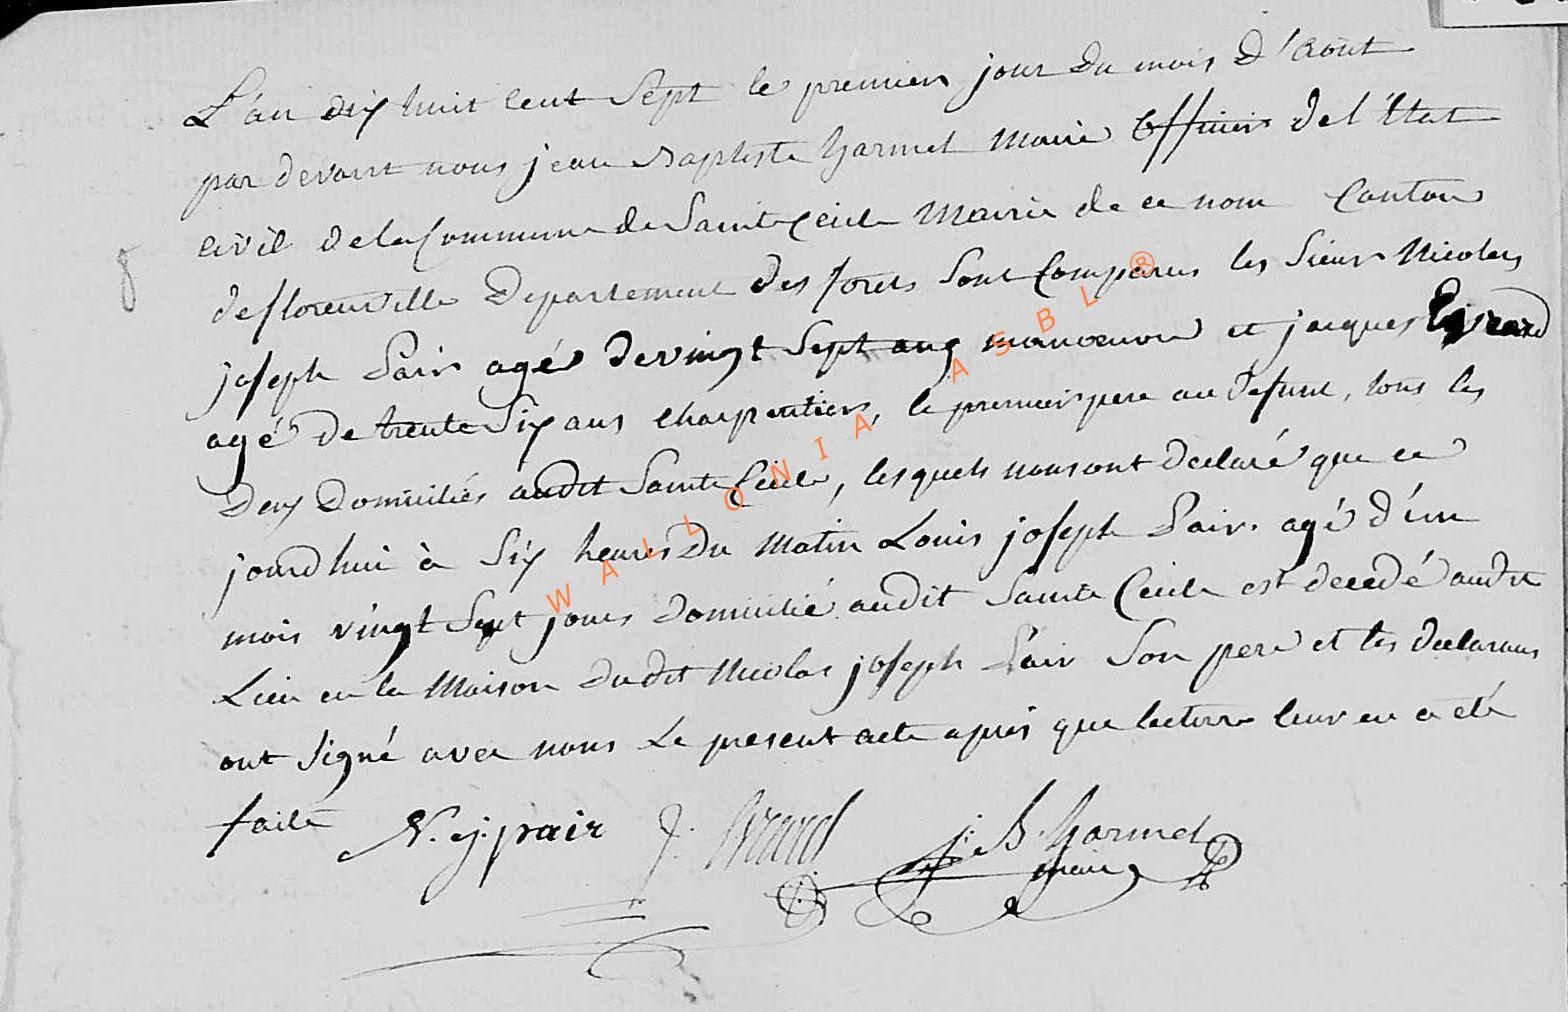 L'an dix huit cent Sept le premier jour Du mois D'Aout
par devant nous jean Baptiste harmel Maire Officier de l'Etat
civil de la Commune de Sainte Cecile Mairie de ce nom Canton
de florenville Departement des forets Sont Comparus les Sieurs Nicolas
joseph Pair agé de vingt Sept ans manoeuvre et jacques Evrard
agé de trente Six ans charpentier, le premier pere au Defunt, tous les
Deux Domiciliés audit Sainte Cecile, lesquels nous ont declaré que ce
jourd'hui à Six heures Du Matin Louis joseph Pair agé d'un
mois vingt Sept jours Domicilié audit Sainte Cecile est decedé audit
Lieu en la Maison Dudit Nicolas joseph Pair Son pere et les declarans
ont Signé avec nous Le present acte après que lecture leur en a été
faite N. j. pair J. Evrard j. B. Harmel
maire
8
WALLONIA ASBL ®